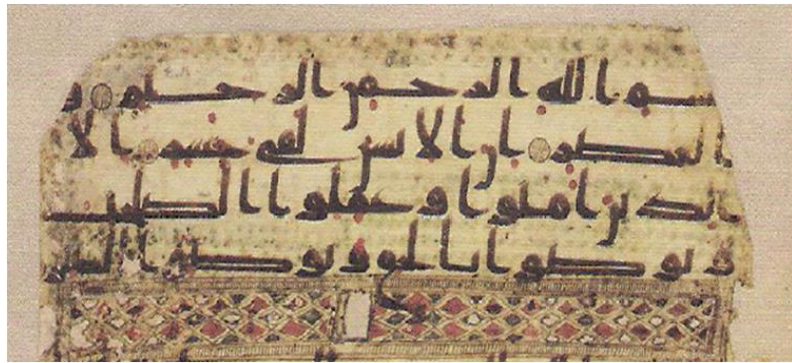 بسم الله الرحمن الرحيم و
العصر ان الانسن لفى خسر الا
الذين امنوا وعملوا الصلحت
وتوصوا بالحق وتوصوا بالصبر